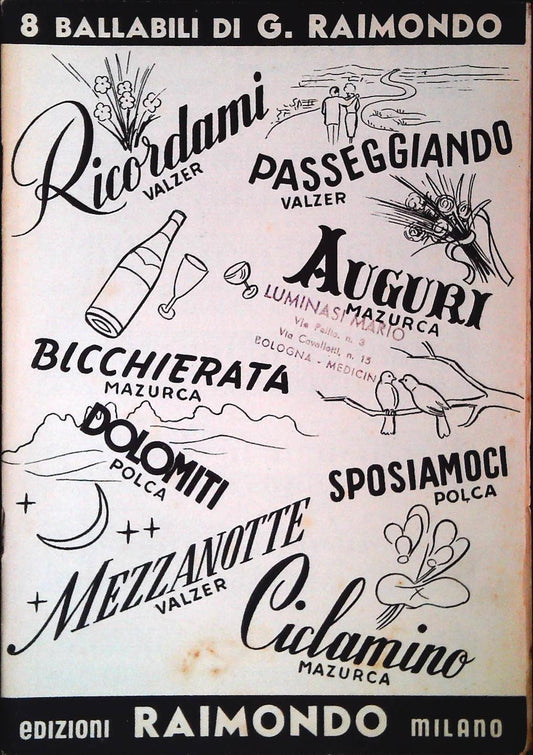 8 BALLABILI DI G. RAIMONDO
Ricordami
VALZER
PASSEGGIANDO
VALZER
AUGURI
MAZURCA
LUMINASI MARIO
Via Cavallotti, n. 15
BOLOGNA - MEDICIN
BICCHIERATA
MAZURCA
DOLOMITI
POLCA
SPOSIAMOCI
POLCA
MEZZANOTTE
VALZER
Ciclamino
MAZURCA
EDIZIONI RAIMONDO MILANO